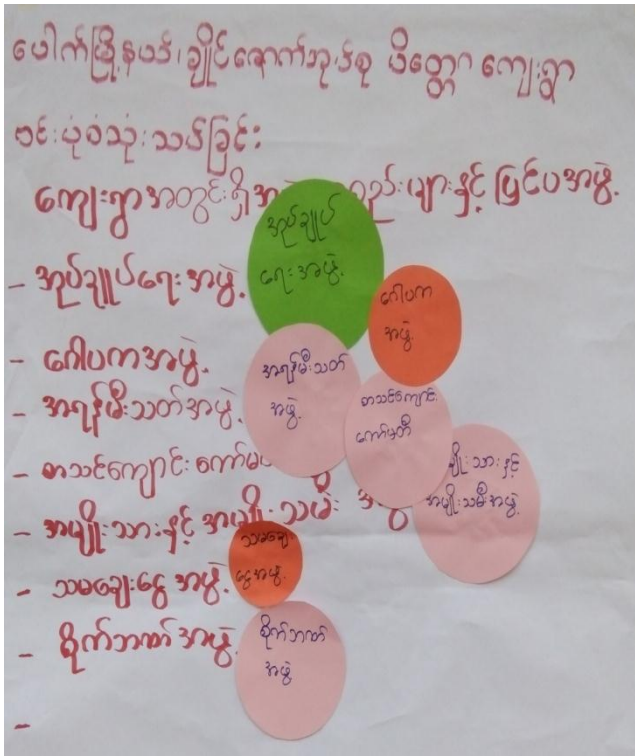 ပေါက်မြို့နယ်၊ ချိုင်ဇောက်အုပ်စု မိတ္တော ကျေးရွာ
ဗင်းပုံစံသုံးသပ်ခြင်း
ကျေးရွာအတွင်းရှိ များနှင့် ပြင်ပအဖွဲ့
- အုပ်ချုပ်ရေးအဖွဲ့
- ဂေါပကအဖွဲ့
- အရန်မီးသတ်အဖွဲ့
- စာသင်ကျောင်း
- အမျိုးသားနှင့် အမျိုးသမီး
- သမချေးငွေအဖွဲ့
- စိုက်ဘဏ်အဖွဲ့
-
အုပ်ချုပ်
ရေးအဖွဲ့
ဂေါပက
အဖွဲ့
အရန်မီးသတ်
အဖွဲ့
စာသင်ကျောင်း
ကော်မတီ
မျိုးသားနှင့်
အမျိုးသမီးအဖွဲ့
သမချေး
ငွေအဖွဲ့
စိုက်ဘဏ်
အဖွဲ့